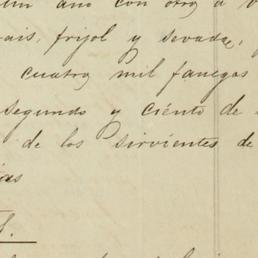 un año con otro a
ais, frijol y sevada,
cuatro mil fanegas
segundo y ciento de
de los sirvientes de
as